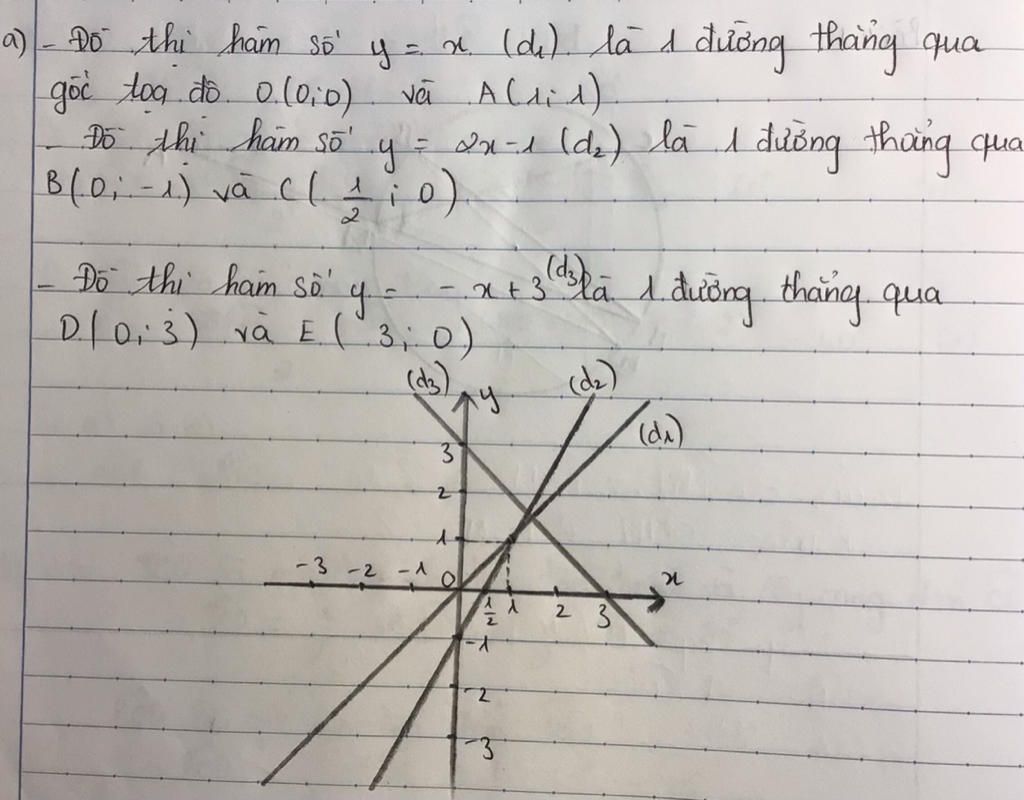 a) - Đồ thị hàm số y = x (d1) là 1 đường thẳng qua
gốc tọa độ O(0;0) và A(1;1)
- Đồ thị hàm số y = 2x-1 (d2) là 1 đường thẳng qua
B(0;-1) và C(1/2;0)
- Đồ thị hàm số y = -x+3 (d3) là 1 đường thẳng qua
D(0;3) và E(3;0)
(d3) y (d2)
(d1)
3
2
1
-3 -2 -1 0 1/2 1 2 3 x
-1
-2
-3